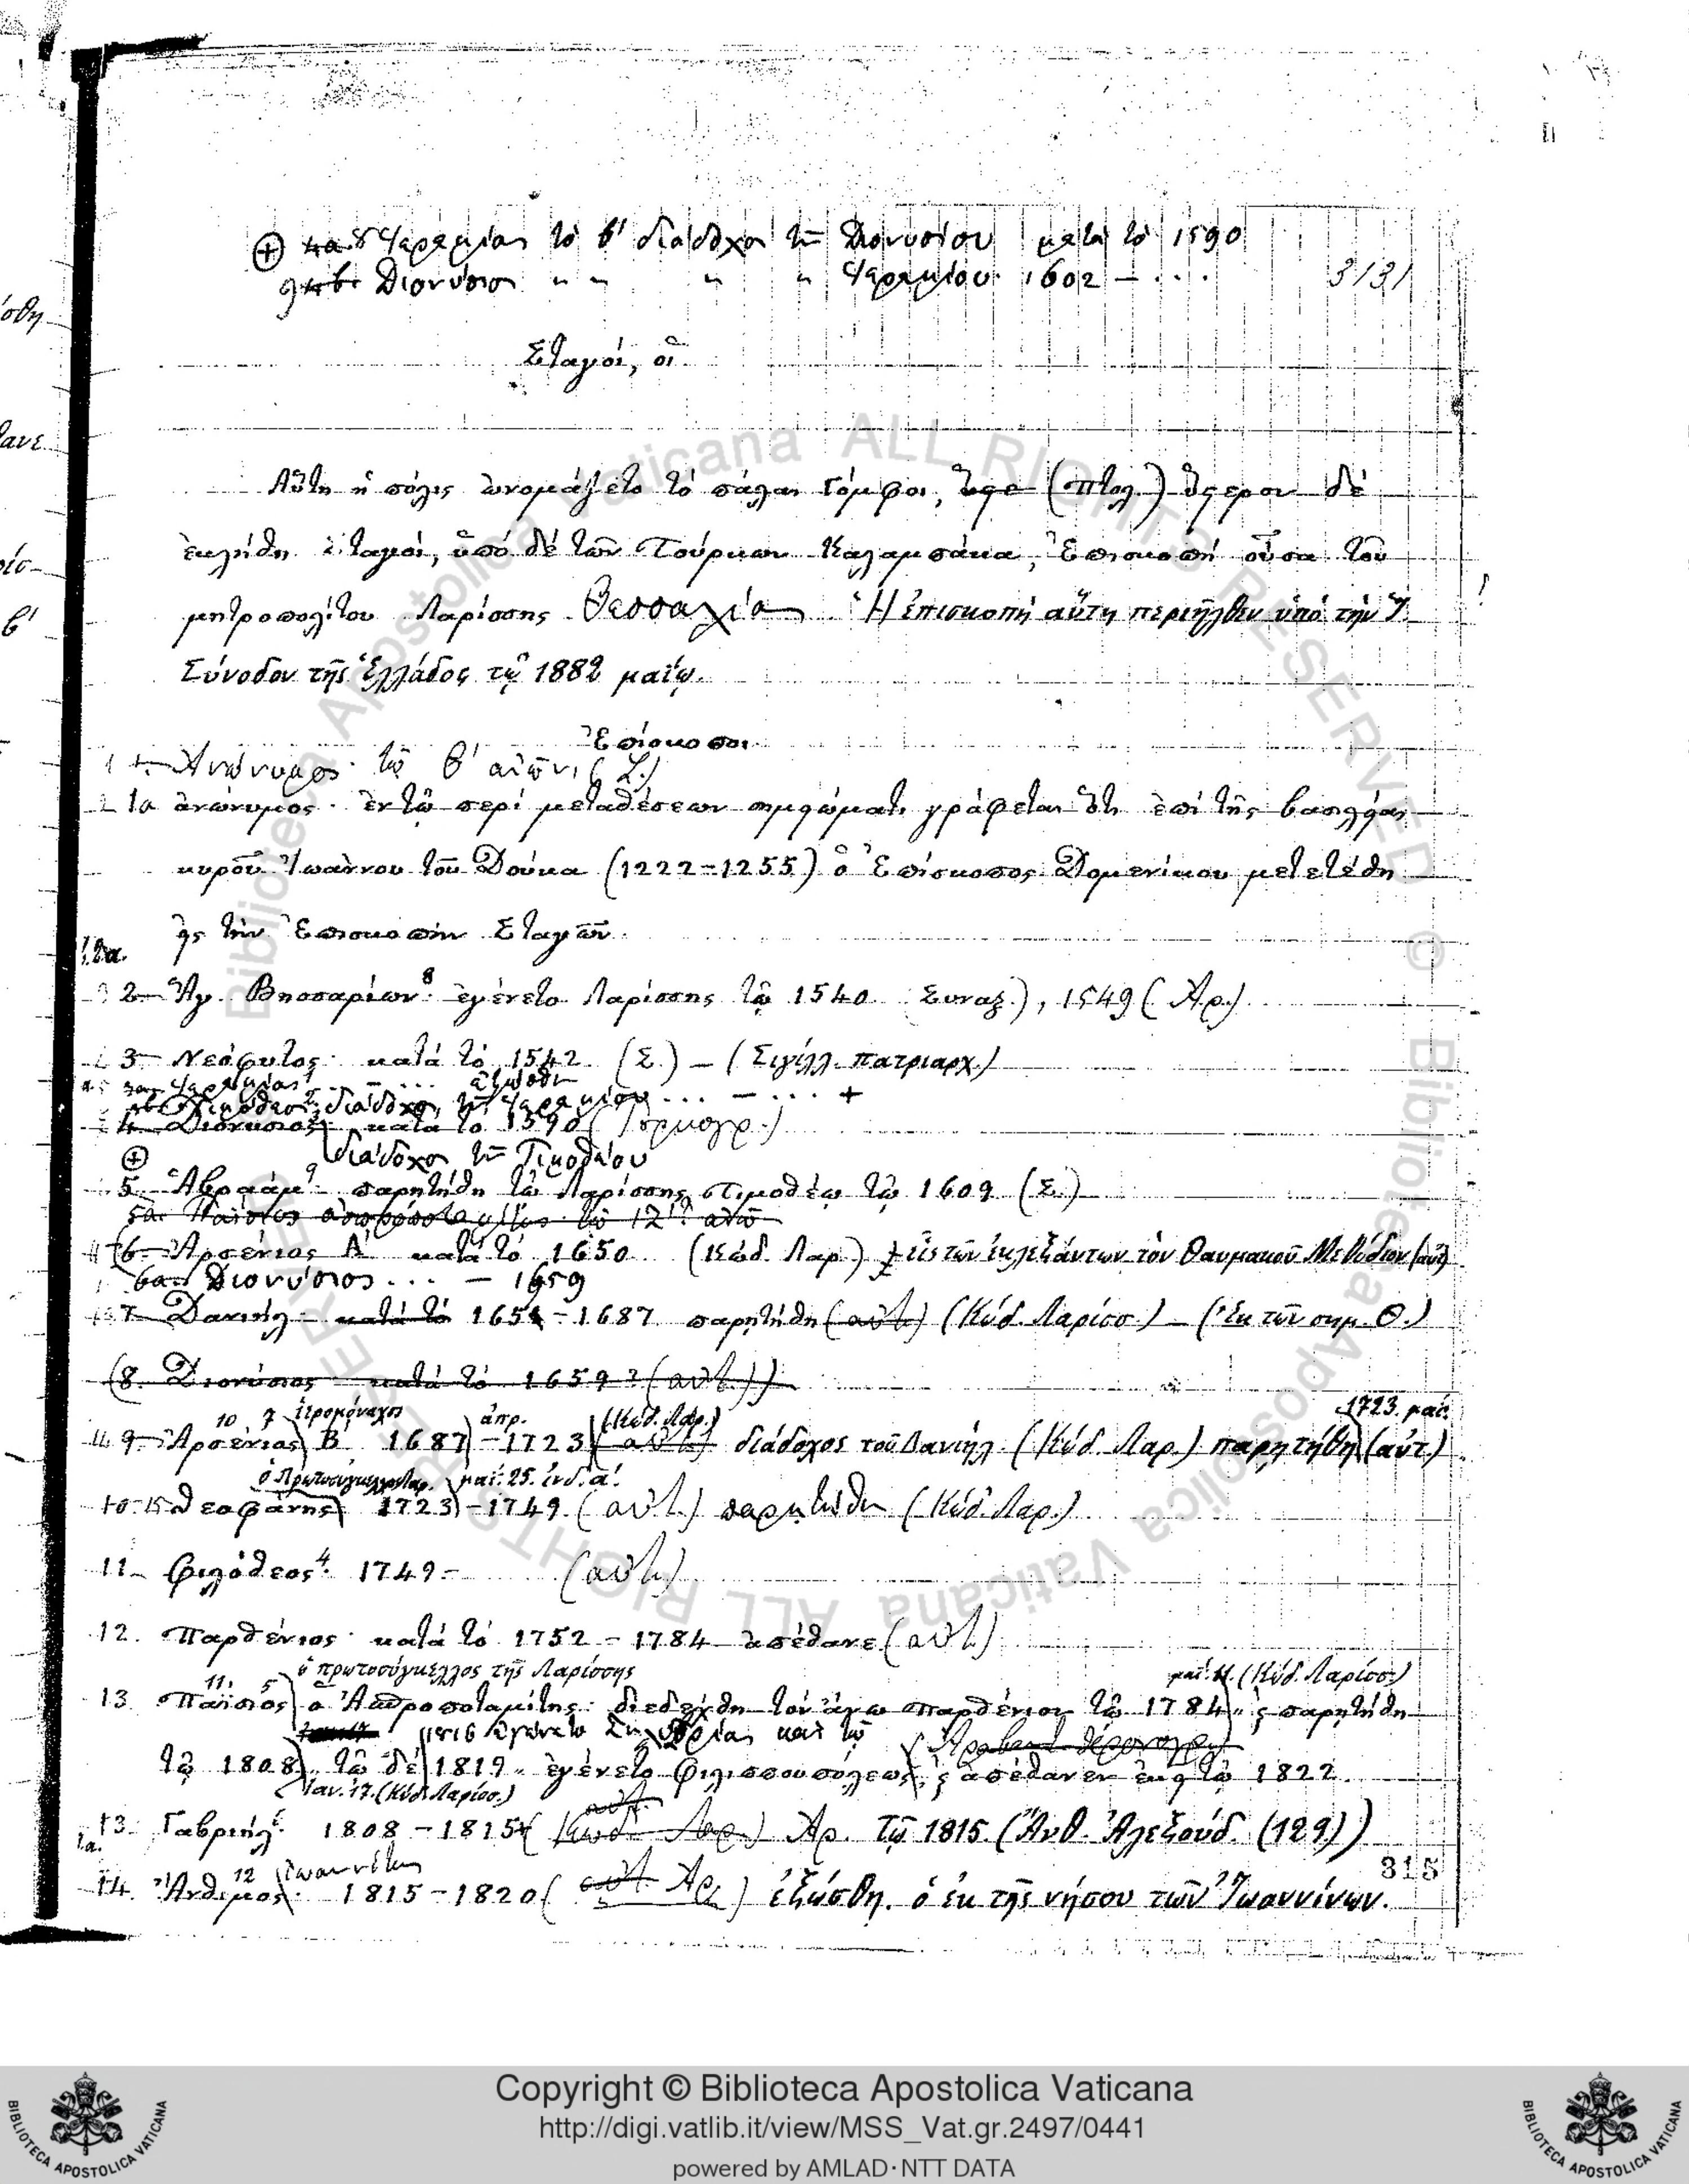 Ἱερεμίας τὸ β' διάδοχος τοῦ Διονυσίου μετὰ τὸ 1590
Διονύσιος " " " " Ἱερεμίου 1602 – ...
3131
Σταγοί, οἱ
Αὕτη ἡ πόλις ὠνομάζετο τὸ πάλαι Γόμφοι, (Πτολ.) ὕστερον δὲ
ἐκλήθη Σταγοί, ὑπὸ δὲ τῶν Τούρκων Καλαμπάκα, Ἐπισκοπὴ οὖσα τοῦ
μητροπολίτου Λαρίσσης Θεσσαλίας Ἡ ἐπισκοπὴ αὕτη περιῆλθεν ὑπὸ τὴν Ἱ.
Σύνοδον τῆς Ἑλλάδος τῷ 1882 μαΐῳ.
Ἐπίσκοποι
1 Ἀνώνυμος τῷ θ' αἰῶνι
1α ἀνώνυμος ἐν τῷ περὶ μεταθέσεων σημειώματι γράφεται ὅτι ἐπὶ τῆς βασιλείας
κυροῦ Ἰωάννου τοῦ Δούκα (1222-1255) ὁ Ἐπίσκοπος Δομενίκου μετετέθη
εἰς τὴν Ἐπισκοπὴν Σταγῶν.
2 Ἁγ. Βησσαρίων ἐγένετο Λαρίσσης τῷ 1540 Συναξ.), 1549 (Ἀρ.)
3 Νεόφυτος κατὰ τὸ 1542 (Σ.) – (Σιγίλλ. πατριαρχ.)
Ἱερεμίας – ...
Τιμόθεος διάδοχος τοῦ Ἱερεμίου ... – ... +
4 Διονύσιος κατὰ τὸ 1590
διάδοχος τοῦ Τιμοθέου
5 Ἀβραάμ παρῃτήθη τῷ Λαρίσσης Τιμοθέῳ τῷ 1609 (Σ.)
5α. Παΐσιος
(6 Ἀρσένιος Α' κατὰ τὸ 1650 (Κώδ. Λαρ.) εἷς τῶν ἐκλεξάντων τὸν Θαυμακοῦ Μεθόδιον (αὐτ)
6α Διονύσιος ... – 1659
7 Δανιήλ κατὰ τὸ 1654 – 1687 παρῃτήθη (αὐτ) (Κώδ. Λαρίσσ.) – (Ἐκ τῶν σημ. Θ.)
(8. Διονύσιος κατὰ τὸ 1659 ? (αὐτ.))
10 7 ἱερομόναχος ἀπρ. (Κώδ. Λαρ.) 1723. μαΐ.
9 Ἀρσένιος Β' 1687 – 1723 (αὐτ) διάδοχος τοῦ Δανιήλ (Κώδ. Λαρ.) παρῃτήθη (αὐτ.)
ὁ Πρωτοσύγκελλος Λαρ. μαΐ. 25. ἰνδ. α'.
10 Θεοφάνης 1723 – 1749 (αὐτ.) παρῃτήθη (Κώδ. Λαρ.)
11 Φιλόθεος 4 1749 – (αὐτ.)
12. Παρθένιος κατὰ τὸ 1752 – 1784 ἀπέθανε (αὐτ.)
11. 5 ὁ πρωτοσύγκελλος τῆς Λαρίσσης μαΐ. 11. (Κώδ. Λαρίσσ.)
13 Παΐσιος ὁ Ξηροποταμίτης διεδέχθη τὸν ἄνω Παρθένιον τῷ 1784 παρῃτήθη
1816 ἐγένετο καὶ τῷ
τῷ 1808 τῷ δὲ 1819 ἐγένετο Φιλιππουπόλεως ἀπέθανεν ἐκεῖ τῷ 1822
Ἰαν. 17. (Κώδ. Λαρίσσ.)
13. 1α. Γαβριήλ 1808 – 1815 (Κωδ. Λαρ.) Ἀρ. Τῷ 1815. (Ἄνθ. Ἀλεξούδ. (129))
315
14. Ἄνθιμος 12 Ἰωαννίτης 1815 – 1820 (αὐτ Ἀρ.) ἐξώσθη. ὁ ἐκ τῆς νήσου τῶν Ἰωαννίνων.
Copyright © Biblioteca Apostolica Vaticana
http://digi.vatlib.it/view/MSS_Vat.gr.2497/0441
powered by AMLAD·NTT DATA